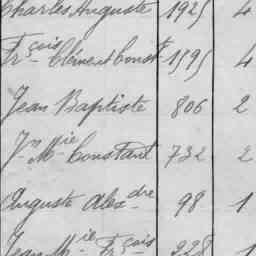 Charles Auguste 1925 4
Frçois Clément Const 1595 4
Jean Baptiste 806 2
Jn Mie Constant 732 2
Auguste Alexdre 98 1
Jean Mie Frçois 228 1